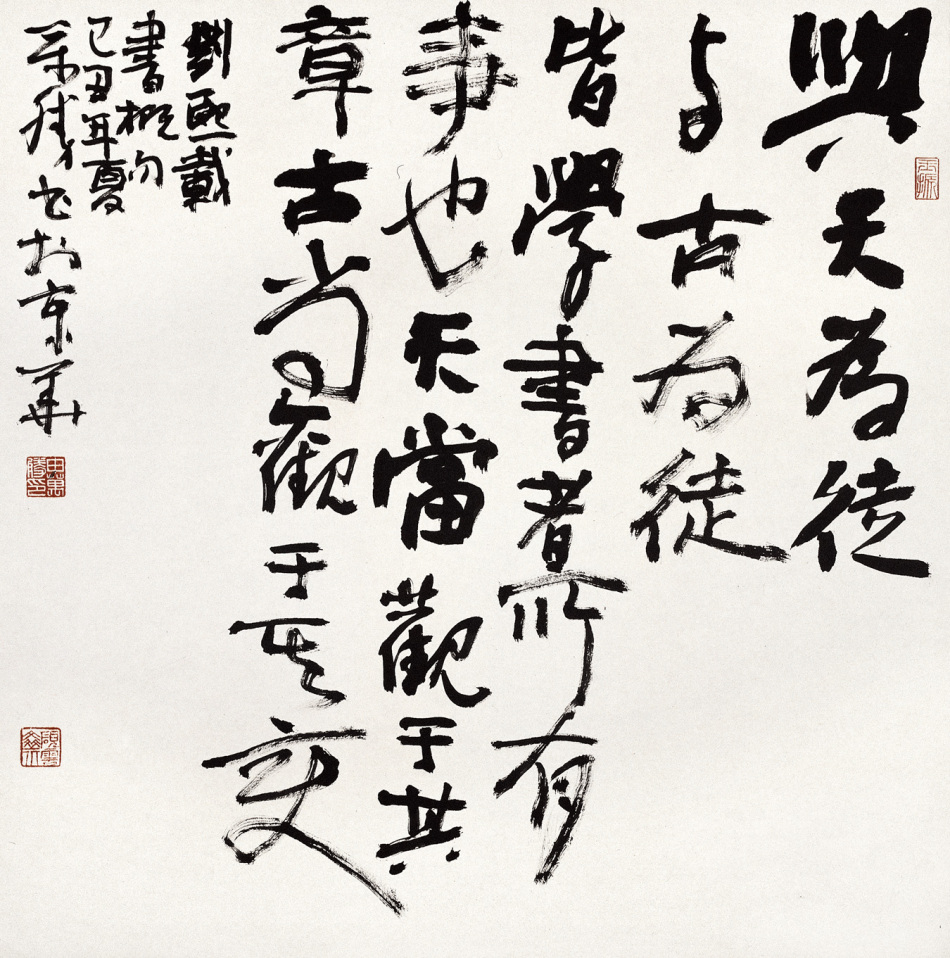 與天為徒
与古為徒
皆學書者所有
事也天當觀于其
章古尚觀于其變
劉熙載
書概句
己丑年夏
万隆书于京華